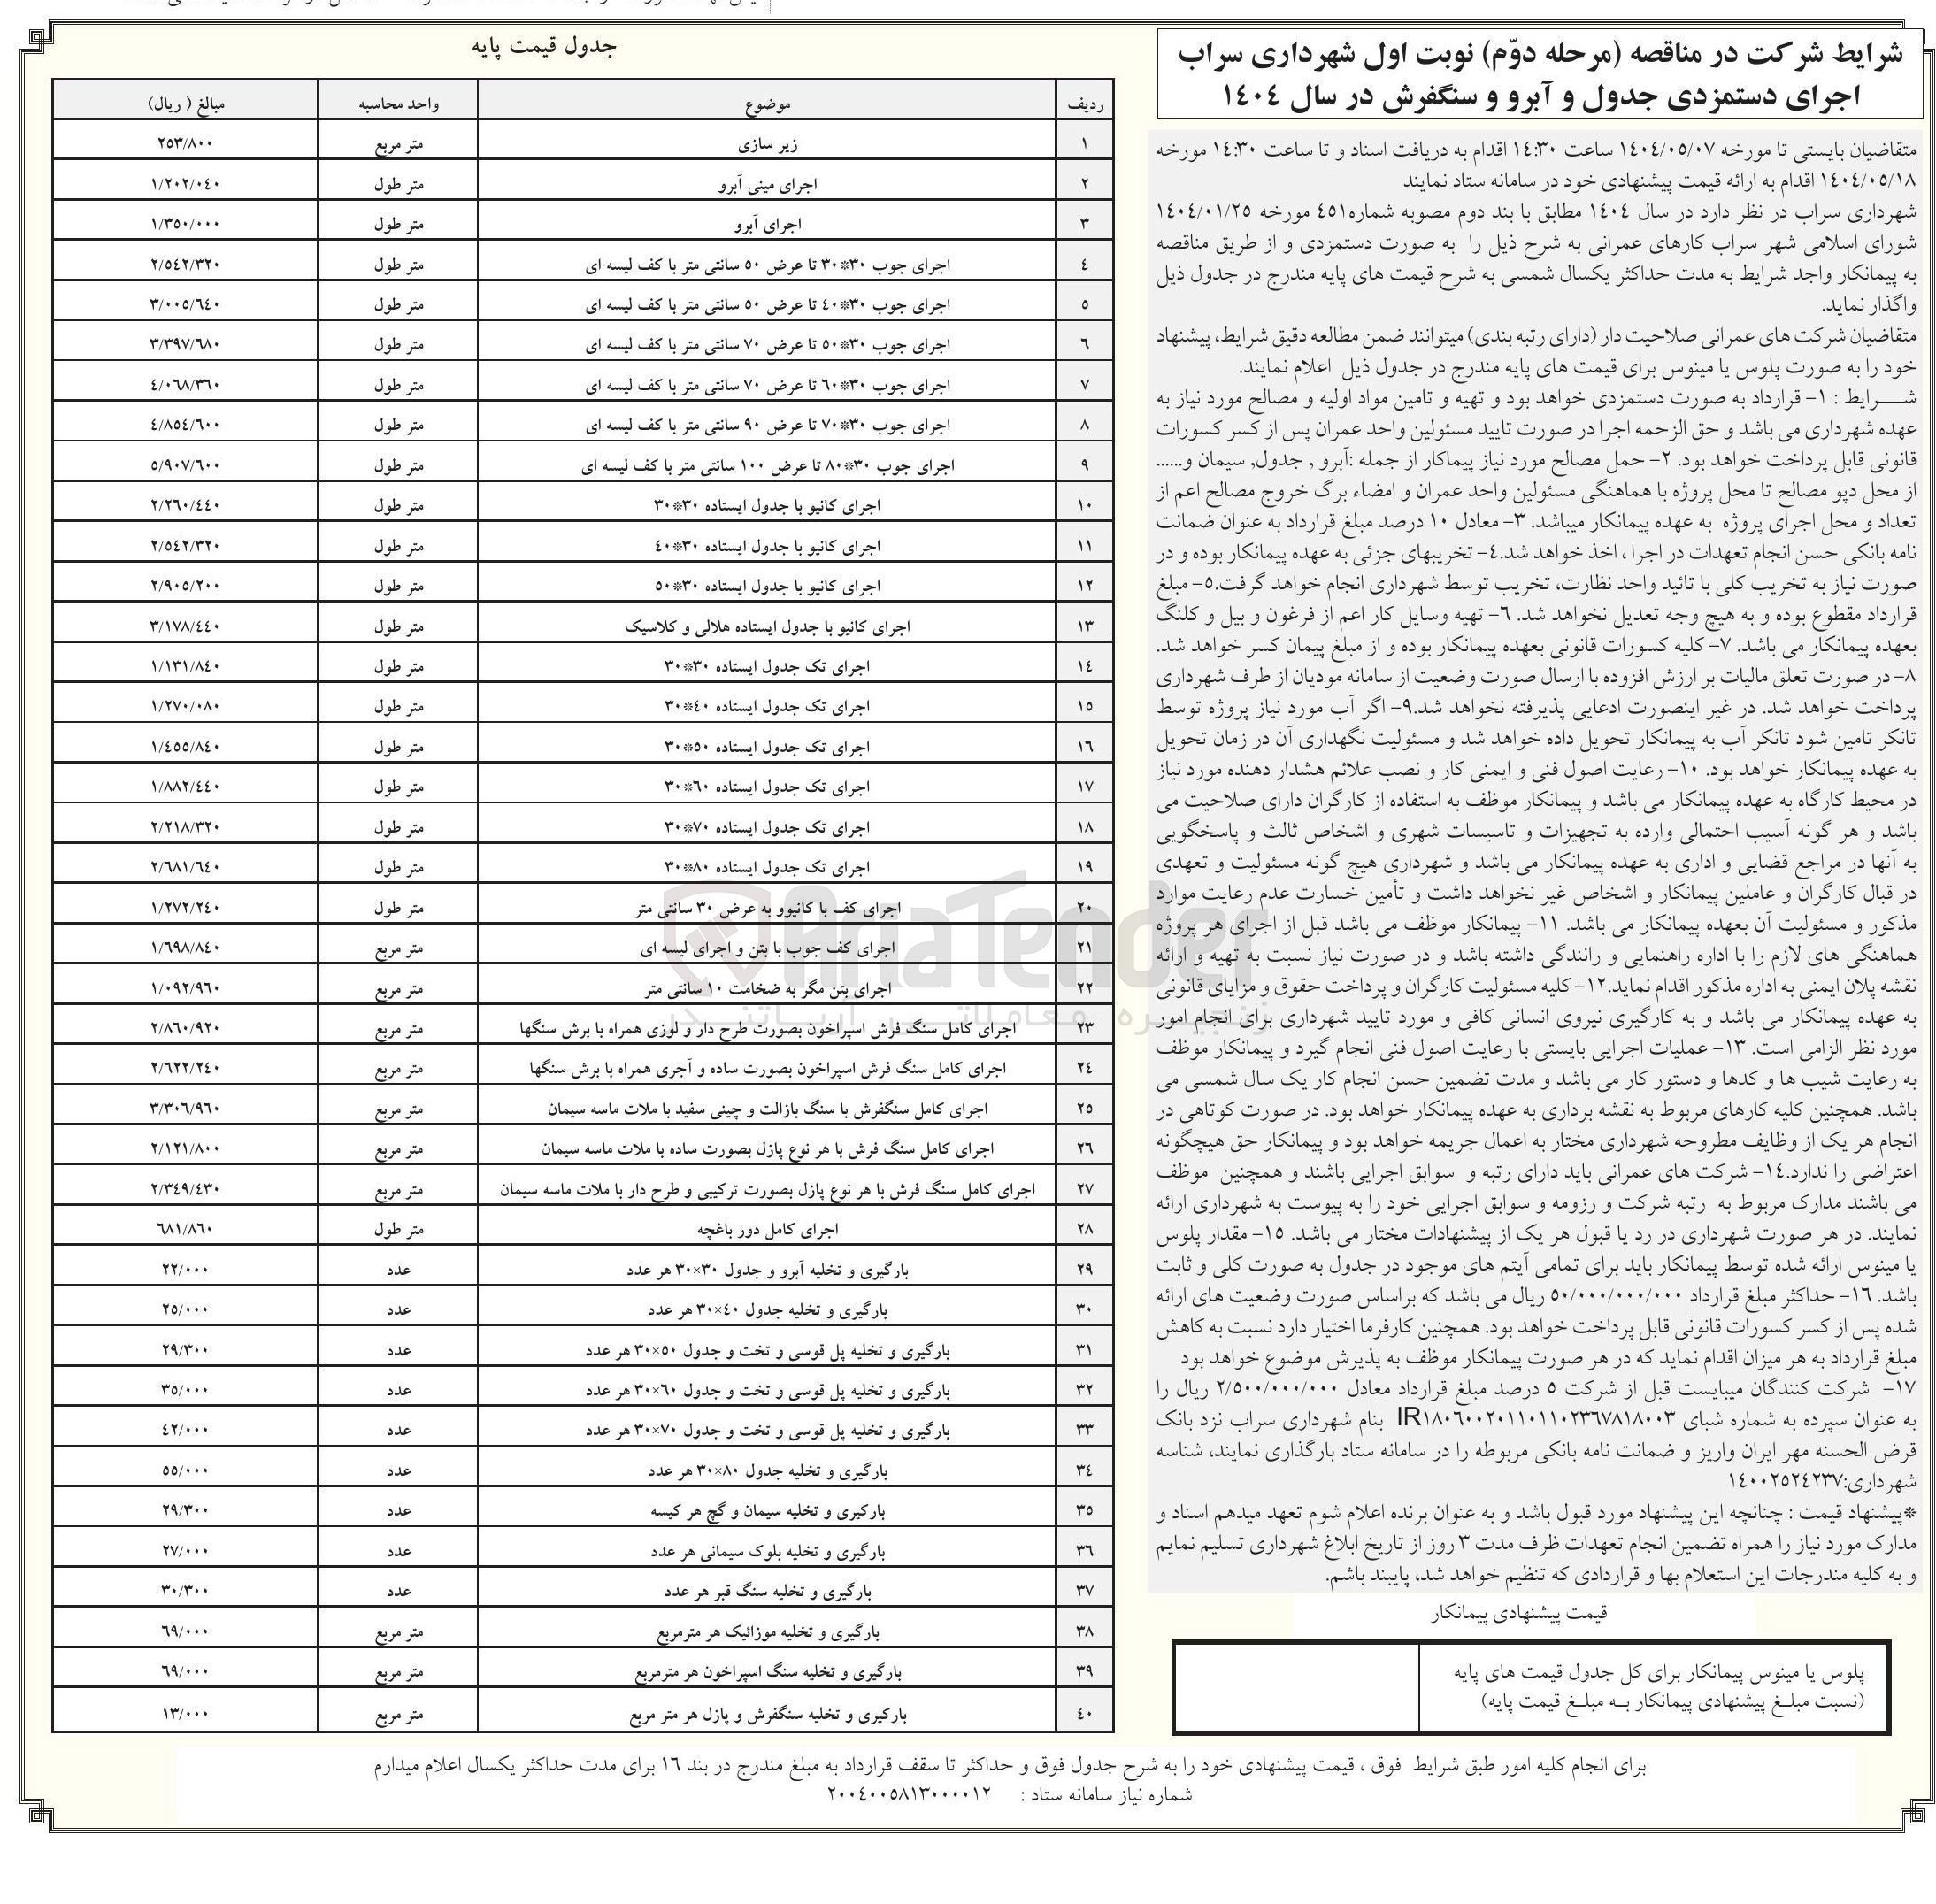 شرایط شرکت در مناقصه (مرحله دوّم) نوبت اول شهرداری سراب
اجرای دستمزدی جدول و آبرو و سنگفرش در سال ١٤٠٤
متقاضیان بایستی تا مورخه ١٤٠٤/٠٥/٠٧ ساعت ١٤:٣٠ اقدام به دریافت اسناد و تا ساعت ١٤:٣٠ مورخه
١٤٠٤/٠٥/١٨ اقدام به ارائه قیمت پیشنهادی خود در سامانه ستاد نمایند
شهرداری سراب در نظر دارد در سال ١٤٠٤ مطابق با بند دوم مصوبه شماره٤٥١ مورخه ١٤٠٤/٠١/٢٥
شورای اسلامی شهر سراب کارهای عمرانی به شرح ذیل را به صورت دستمزدی و از طریق مناقصه
به پیمانکار واجد شرایط به مدت حداکثر یکسال شمسی به شرح قیمت های پایه مندرج در جدول ذیل
واگذار نماید.
متقاضیان شرکت های عمرانی صلاحیت دار (دارای رتبه بندی) میتوانند ضمن مطالعه دقیق شرایط، پیشنهاد
خود را به صورت پلوس یا مینوس برای قیمت های پایه مندرج در جدول ذیل اعلام نمایند.
شــــرایط : ١- قرارداد به صورت دستمزدی خواهد بود و تهیه و تامین مواد اولیه و مصالح مورد نیاز به
عهده شهرداری می باشد و حق الزحمه اجرا در صورت تایید مسئولین واحد عمران پس از کسر کسورات
قانونی قابل پرداخت خواهد بود. ٢- حمل مصالح مورد نیاز پیماکار از جمله :آبرو , جدول, سیمان و......
از محل دپو مصالح تا محل پروژه با هماهنگی مسئولین واحد عمران و امضاء برگ خروج مصالح اعم از
تعداد و محل اجرای پروژه به عهده پیمانکار میباشد. ٣- معادل ١٠ درصد مبلغ قرارداد به عنوان ضمانت
نامه بانکی حسن انجام تعهدات در اجرا ، اخذ خواهد شد.٤- تخریبهای جزئی به عهده پیمانکار بوده و در
صورت نیاز به تخریب کلی با تائید واحد نظارت، تخریب توسط شهرداری انجام خواهد گرفت.٥- مبلغ
قرارداد مقطوع بوده و به هیچ وجه تعدیل نخواهد شد. ٦- تهیه وسایل کار اعم از فرغون و بیل و کلنگ
بعهده پیمانکار می باشد. ٧- کلیه کسورات قانونی بعهده پیمانکار بوده و از مبلغ پیمان کسر خواهد شد.
٨- در صورت تعلق مالیات بر ارزش افزوده با ارسال صورت وضعیت از سامانه مودیان از طرف شهرداری
پرداخت خواهد شد. در غیر اینصورت ادعایی پذیرفته نخواهد شد.٩- اگر آب مورد نیاز پروژه توسط
تانکر تامین شود تانکر آب به پیمانکار تحویل داده خواهد شد و مسئولیت نگهداری آن در زمان تحویل
به عهده پیمانکار خواهد بود. ١٠- رعایت اصول فنی و ایمنی کار و نصب علائم هشدار دهنده مورد نیاز
در محیط کارگاه به عهده پیمانکار می باشد و پیمانکار موظف به استفاده از کارگران دارای صلاحیت می
باشد و هر گونه آسیب احتمالی وارده به تجهیزات و تاسیسات شهری و اشخاص ثالث و پاسخگویی
به آنها در مراجع قضایی و اداری به عهده پیمانکار می باشد و شهرداری هیچ گونه مسئولیت و تعهدی
در قبال کارگران و عاملین پیمانکار و اشخاص غیر نخواهد داشت و تأمین خسارت عدم رعایت موارد
مذکور و مسئولیت آن بعهده پیمانکار می باشد. ١١- پیمانکار موظف می باشد قبل از اجرای هر پروژه
هماهنگی های لازم را با اداره راهنمایی و رانندگی داشته باشد و در صورت نیاز نسبت به تهیه و ارائه
نقشه پلان ایمنی به اداره مذکور اقدام نماید.١٢- کلیه مسئولیت کارگران و پرداخت حقوق و مزایای قانونی
به عهده پیمانکار می باشد و به کارگیری نیروی انسانی کافی و مورد تایید شهرداری برای انجام امور
مورد نظر الزامی است. ١٣- عملیات اجرایی بایستی با رعایت اصول فنی انجام گیرد و پیمانکار موظف
به رعایت شیب ها و کدها و دستور کار می باشد و مدت تضمین حسن انجام کار یک سال شمسی می
باشد. همچنین کلیه کارهای مربوط به نقشه برداری به عهده پیمانکار خواهد بود. در صورت کوتاهی در
انجام هر یک از وظایف مطروحه شهرداری مختار به اعمال جریمه خواهد بود و پیمانکار حق هیچگونه
اعتراضی را ندارد.١٤- شرکت های عمرانی باید دارای رتبه و سوابق اجرایی باشند و همچنین موظف
می باشند مدارک مربوط به رتبه شرکت و رزومه و سوابق اجرایی خود را به پیوست به شهرداری ارائه
نمایند. در هر صورت شهرداری در رد یا قبول هر یک از پیشنهادات مختار می باشد. ١٥- مقدار پلوس
یا مینوس ارائه شده توسط پیمانکار باید برای تمامی آیتم های موجود در جدول به صورت کلی و ثابت
باشد. ١٦- حداکثر مبلغ قرارداد ٥٠/٠٠٠/٠٠٠/٠٠٠ ریال می باشد که براساس صورت وضعیت های ارائه
شده پس از کسر کسورات قانونی قابل پرداخت خواهد بود. همچنین کارفرما اختیار دارد نسبت به کاهش
مبلغ قرارداد به هر میزان اقدام نماید که در هر صورت پیمانکار موظف به پذیرش موضوع خواهد بود
١٧- شرکت کنندگان میبایست قبل از شرکت ٥ درصد مبلغ قرارداد معادل ٢/٥٠٠/٠٠٠/٠٠٠ ریال را
به عنوان سپرده به شماره شبای IR١٨٠٦٠٠٢٠١١٠١١٠٢٣٦٧٨١٨٠٠٣ بنام شهرداری سراب نزد بانک
قرض الحسنه مهر ایران واریز و ضمانت نامه بانکی مربوطه را در سامانه ستاد بارگذاری نمایند، شناسه
شهرداری:١٤٠٠٢٥٢٤٢٣٧
*پیشنهاد قیمت : چنانچه این پیشنهاد مورد قبول باشد و به عنوان برنده اعلام شوم تعهد میدهم اسناد و
مدارک مورد نیاز را همراه تضمین انجام تعهدات ظرف مدت ٣ روز از تاریخ ابلاغ شهرداری تسلیم نمایم
و به کلیه مندرجات این استعلام بها و قراردادی که تنظیم خواهد شد، پایبند باشم.
قیمت پیشنهادی پیمانکار
پلوس یا مینوس پیمانکار برای کل جدول قیمت های پایه
(نسبت مبلـغ پیشنهادی پیمانکار بـه مبلـغ قیمت پایه)
جدول قیمت پایه
ردیف موضوع واحد محاسبه مبالغ ( ریال)
١ زیر سازی متر مربع ٢٥٣/٨٠٠
٢ اجرای مینی آبرو متر طول ١/٢٠٢/٠٤٠
٣ اجرای آبرو متر طول ١/٣٥٠/٠٠٠
٤ اجرای جوب ٣٠*٣٠ تا عرض ٥٠ سانتی متر با کف لیسه ای متر طول ٢/٥٤٢/٣٢٠
٥ اجرای جوب ٣٠*٤٠ تا عرض ٥٠ سانتی متر با کف لیسه ای متر طول ٣/٠٠٥/٦٤٠
٦ اجرای جوب ٣٠*٥٠ تا عرض ٧٠ سانتی متر با کف لیسه ای متر طول ٣/٣٩٧/٦٨٠
٧ اجرای جوب ٣٠*٦٠ تا عرض ٧٠ سانتی متر با کف لیسه ای متر طول ٤/٠٦٨/٣٦٠
٨ اجرای جوب ٣٠*٧٠ تا عرض ٩٠ سانتی متر با کف لیسه ای متر طول ٤/٨٥٤/٦٠٠
٩ اجرای جوب ٣٠*٨٠ تا عرض ١٠٠ سانتی متر با کف لیسه ای متر طول ٥/٩٠٧/٦٠٠
١٠ اجرای کانیو با جدول ایستاده ٣٠*٣٠ متر طول ٢/٢٦٠/٤٤٠
١١ اجرای کانیو با جدول ایستاده ٣٠*٤٠ متر طول ٢/٥٤٢/٣٢٠
١٢ اجرای کانیو با جدول ایستاده ٣٠*٥٠ متر طول ٢/٩٠٥/٢٠٠
١٣ اجرای کانیو با جدول ایستاده هلالی و کلاسیک متر طول ٣/١٧٨/٤٤٠
١٤ اجرای تک جدول ایستاده ٣٠*٣٠ متر طول ١/١٣١/٨٤٠
١٥ اجرای تک جدول ایستاده ٤٠*٣٠ متر طول ١/٢٧٠/٠٨٠
١٦ اجرای تک جدول ایستاده ٥٠*٣٠ متر طول ١/٤٥٥/٨٤٠
١٧ اجرای تک جدول ایستاده ٦٠*٣٠ متر طول ١/٨٨٢/٤٤٠
١٨ اجرای تک جدول ایستاده ٧٠*٣٠ متر طول ٢/٢١٨/٣٢٠
١٩ اجرای تک جدول ایستاده ٨٠*٣٠ متر طول ٢/٦٨١/٦٤٠
٢٠ اجرای کف با کانیوو به عرض ٣٠ سانتی متر متر طول ١/٢٧٢/٢٤٠
٢١ اجرای کف جوب با بتن و اجرای لیسه ای متر مربع ١/٦٩٨/٨٤٠
٢٢ اجرای بتن مگر به ضخامت ١٠ سانتی متر متر مربع ١/٠٩٢/٩٦٠
٢٣ اجرای کامل سنگ فرش اسپراخون بصورت طرح دار و لوزی همراه با برش سنگها متر مربع ٢/٨٦٠/٩٢٠
٢٤ اجرای کامل سنگ فرش اسپراخون بصورت ساده و آجری همراه با برش سنگها متر مربع ٢/٦٢٢/٢٤٠
٢٥ اجرای کامل سنگفرش با سنگ بازالت و چینی سفید با ملات ماسه سیمان متر مربع ٣/٣٠٦/٩٦٠
٢٦ اجرای کامل سنگ فرش با هر نوع پازل بصورت ساده با ملات ماسه سیمان متر مربع ٢/١٢١/٨٠٠
٢٧ اجرای کامل سنگ فرش با هر نوع پازل بصورت ترکیبی و طرح دار با ملات ماسه سیمان متر مربع ٢/٣٤٩/٤٣٠
٢٨ اجرای کامل دور باغچه متر طول ٦٨١/٨٦٠
٢٩ بارگیری و تخلیه آبرو و جدول ٣٠×٣٠ هر عدد عدد ٢٢/٠٠٠
٣٠ بارگیری و تخلیه جدول ٤٠×٣٠ هر عدد عدد ٢٥/٠٠٠
٣١ بارگیری و تخلیه پل قوسی و تخت و جدول ٥٠×٣٠ هر عدد عدد ٢٩/٣٠٠
٣٢ بارگیری و تخلیه پل قوسی و تخت و جدول ٦٠×٣٠ هر عدد عدد ٣٥/٠٠٠
٣٣ بارگیری و تخلیه پل قوسی و تخت و جدول ٧٠×٣٠ هر عدد عدد ٤٢/٠٠٠
٣٤ بارگیری و تخلیه جدول ٨٠×٣٠ هر عدد عدد ٥٥/٠٠٠
٣٥ بارکیری و تخلیه سیمان و گچ هر کیسه عدد ٢٩/٣٠٠
٣٦ بارگیری و تخلیه بلوک سیمانی هر عدد عدد ٢٧/٠٠٠
٣٧ بارگیری و تخلیه سنگ قبر هر عدد عدد ٣٠/٣٠٠
٣٨ بارگیری و تخلیه موزائیک هر مترمربع متر مربع ٦٩/٠٠٠
٣٩ بارگیری و تخلیه سنگ اسپراخون هر مترمربع متر مربع ٦٩/٠٠٠
٤٠ بارکیری و تخلیه سنگفرش و پازل هر متر مربع متر مربع ١٣/٠٠٠
AriaTender
برای انجام کلیه امور طبق شرایط فوق ، قیمت پیشنهادی خود را به شرح جدول فوق و حداکثر تا سقف قرارداد به مبلغ مندرج در بند ١٦ برای مدت حداکثر یکسال اعلام میدارم
شماره نیاز سامانه ستاد : ٢٠٠٤٠٠٥٨١٣٠٠٠٠١٢